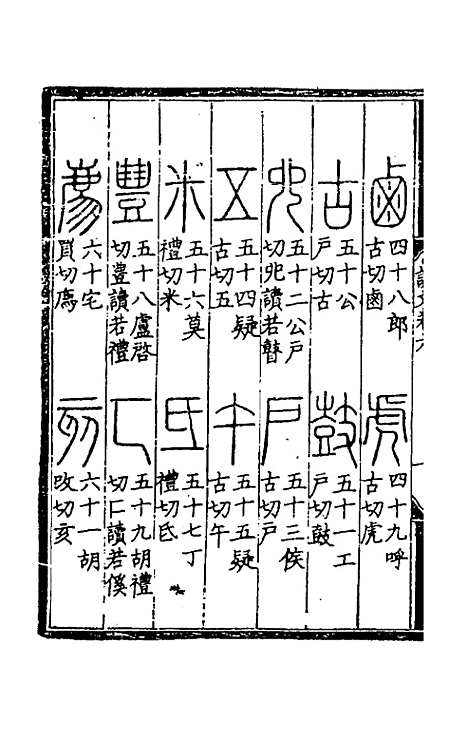 鹵
四十八郎
古切鹵
虎
四十九呼
古切虎
古
五十公
戶切古
鼓
五十一工
戶切鼓
𠑹
五十二公戶
切𠑹讀若瞽
戶
五十三矦
古切戶
五
五十四疑
古切五
午
五十五疑
古切午
米
五十六莫
禮切米
氐
五十七丁
禮切氐
豊
五十八盧啓
切豊讀若禮
匸
五十九胡禮
切匸讀若傒
廌
六十宅
買切廌
亥
六十一胡
改切亥